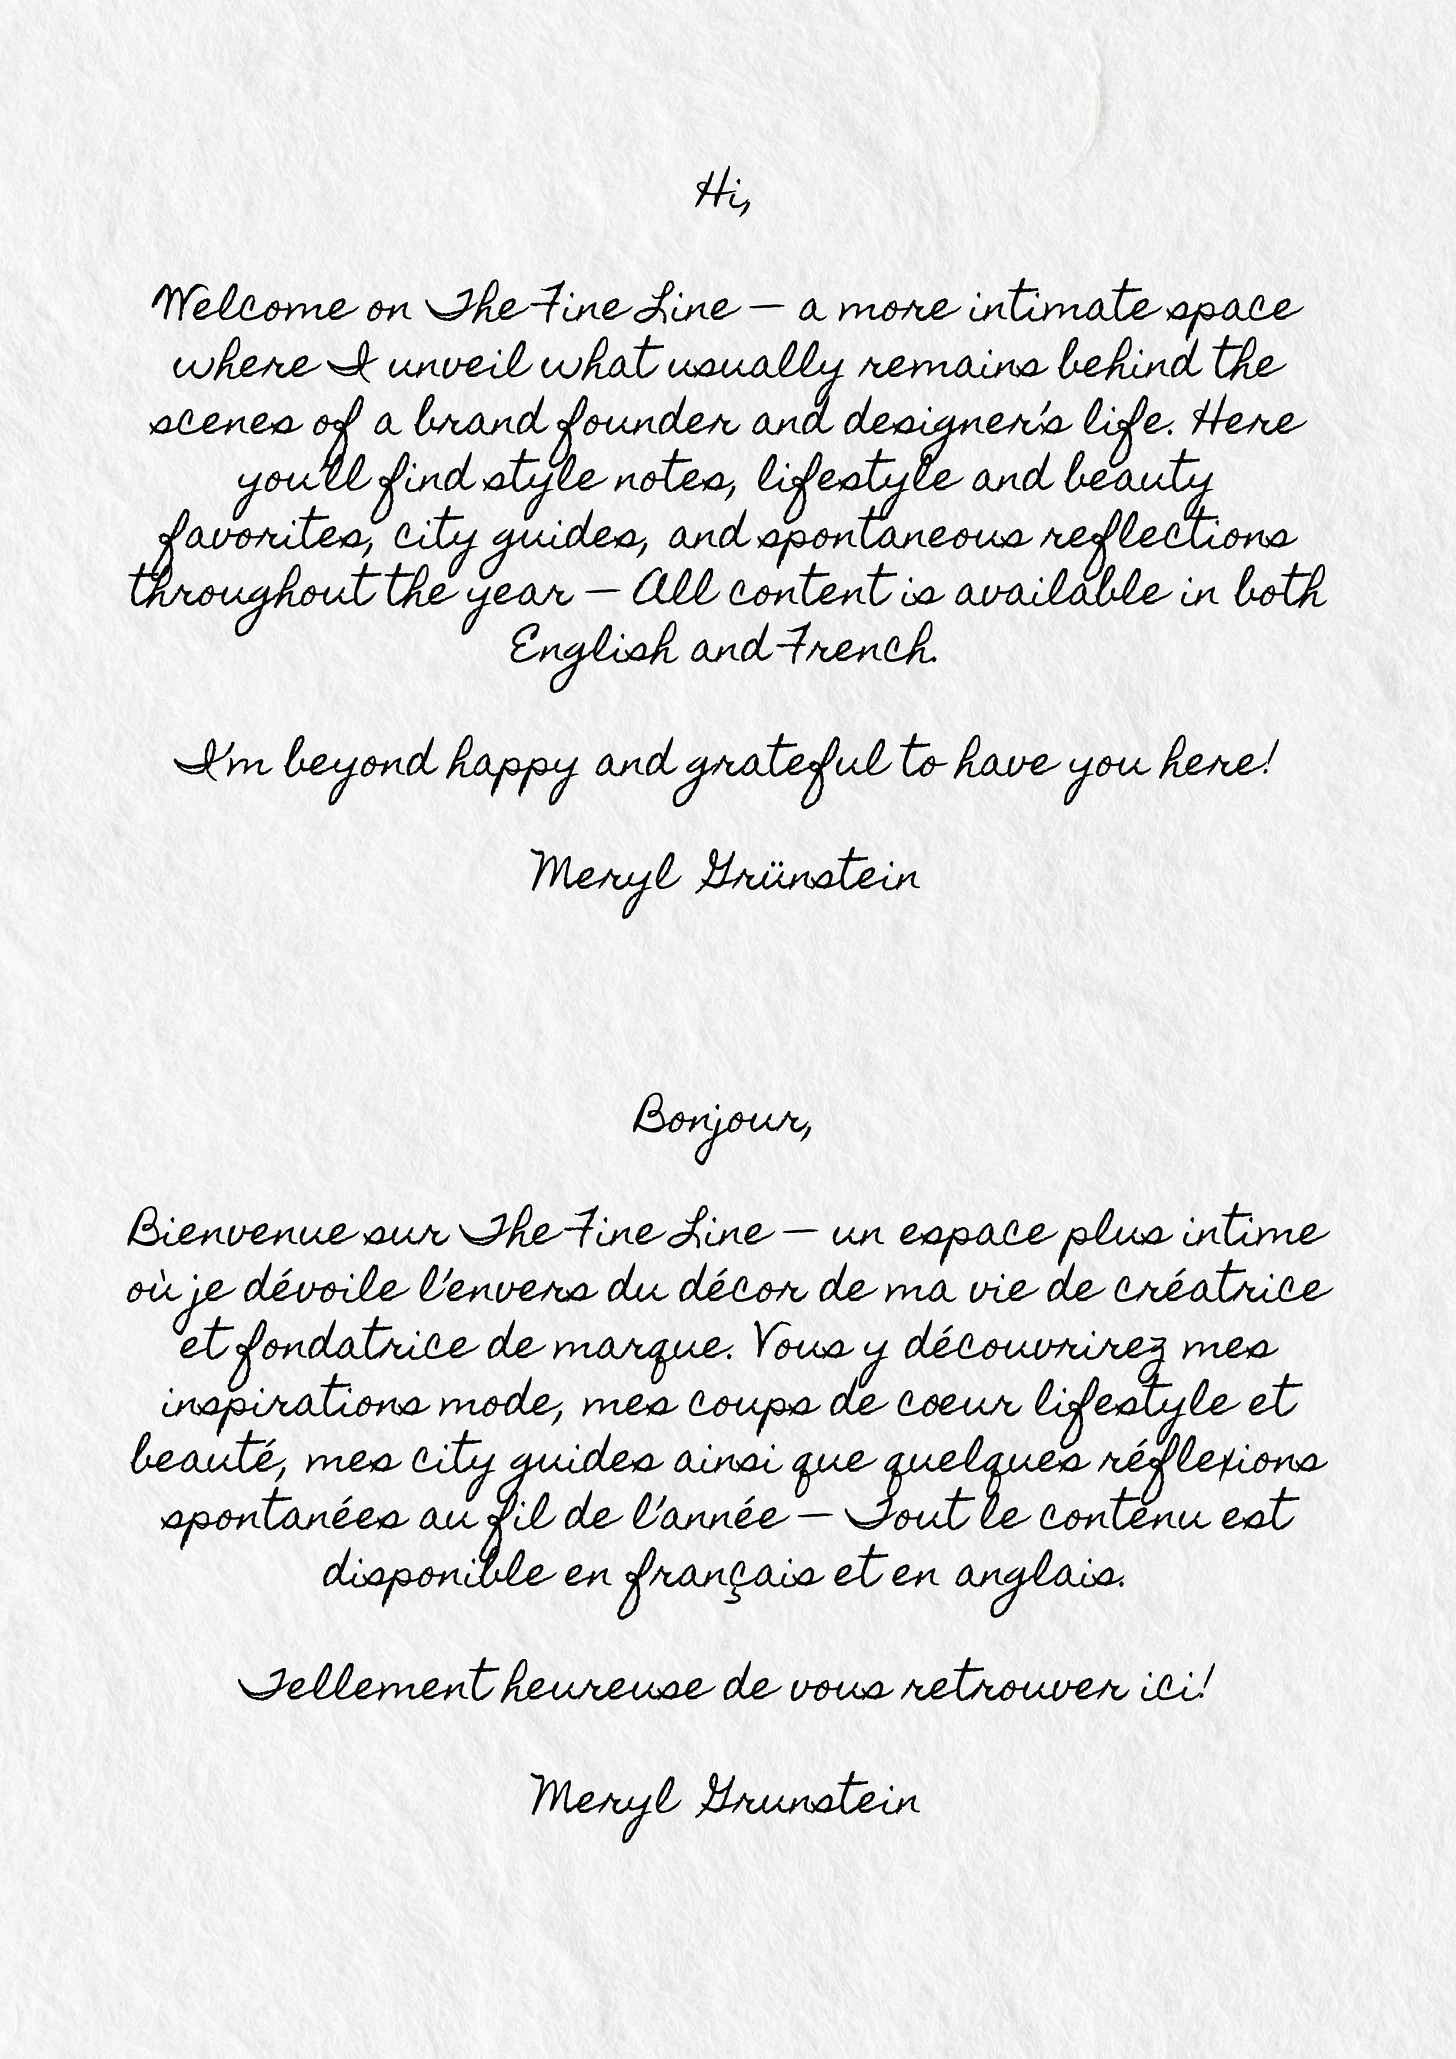 Hi,
Welcome on The Fine Line — a more intimate space
where I unveil what usually remains behind the
scenes of a brand founder and designer's life. Here
you'll find style notes, lifestyle and beauty
favorites, city guides, and spontaneous reflections
throughout the year — All content is available in both
English and French.
I'm beyond happy and grateful to have you here!
Meryl Grünstein
Bonjour,
Bienvenue sur The Fine Line — un espace plus intime
où je dévoile l'envers du décor de ma vie de créatrice
et fondatrice de marque. Vous y découvrirez mes
inspirations mode, mes coups de cœur lifestyle et
beauté, mes city guides ainsi que quelques réflexions
spontanées au fil de l'année — Tout le contenu est
disponible en français et en anglais.
Tellement heureuse de vous retrouver ici!
Meryl Grunstein